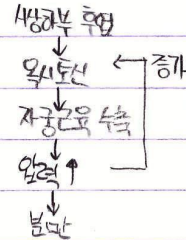 시상하부 후엽
↓
옥시토신 ← 증가
↓
자궁근육 수축
↓
압력↑
↓
분만